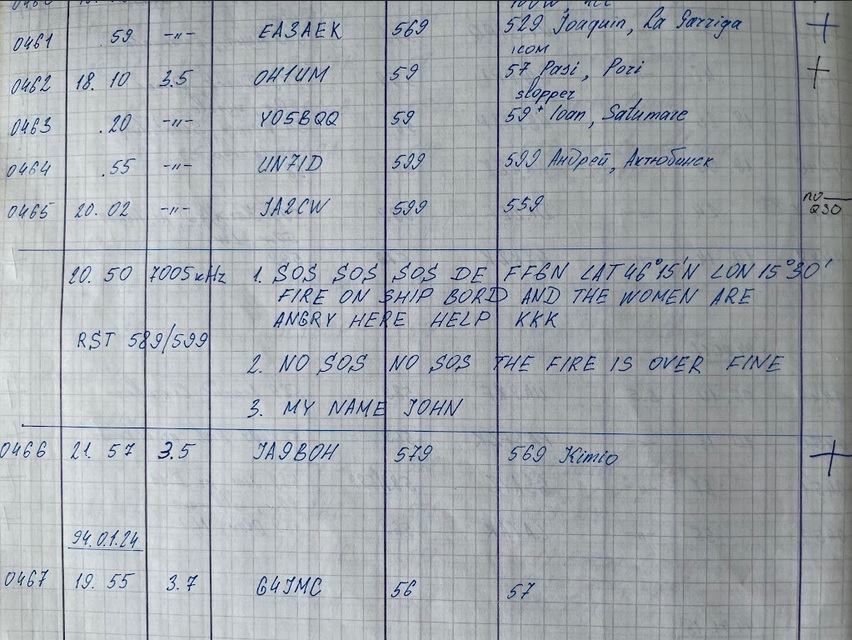 0461 .59 -"- EA3AEK 569 529 Joaquin, La Garriga +
icom
0462 18.10 3.5 OH1UM 59 57 Pasi, Pori +
slopper
0463 .20 -"- YO5BQQ 59 59+ Ioan, Satumare
0464 .55 -"- UN7ID 599 599 Андрей, Актюбинск
0465 20.02 -"- JA2CW 599 559 no
QSO
20.50 7005 kHz 1. SOS SOS SOS DE FF6N LAT 46°15'N LON 15°30'
FIRE ON SHIP BORD AND THE WOMEN ARE
ANGRY HERE HELP KKK
RST 589/599
2. NO SOS NO SOS THE FIRE IS OVER FINE
3. MY NAME JOHN
0466 21.57 3.5 JA9BOH 579 569 Kimio +
94.01.24
0467 19.55 3.7 G4JMC 56 57